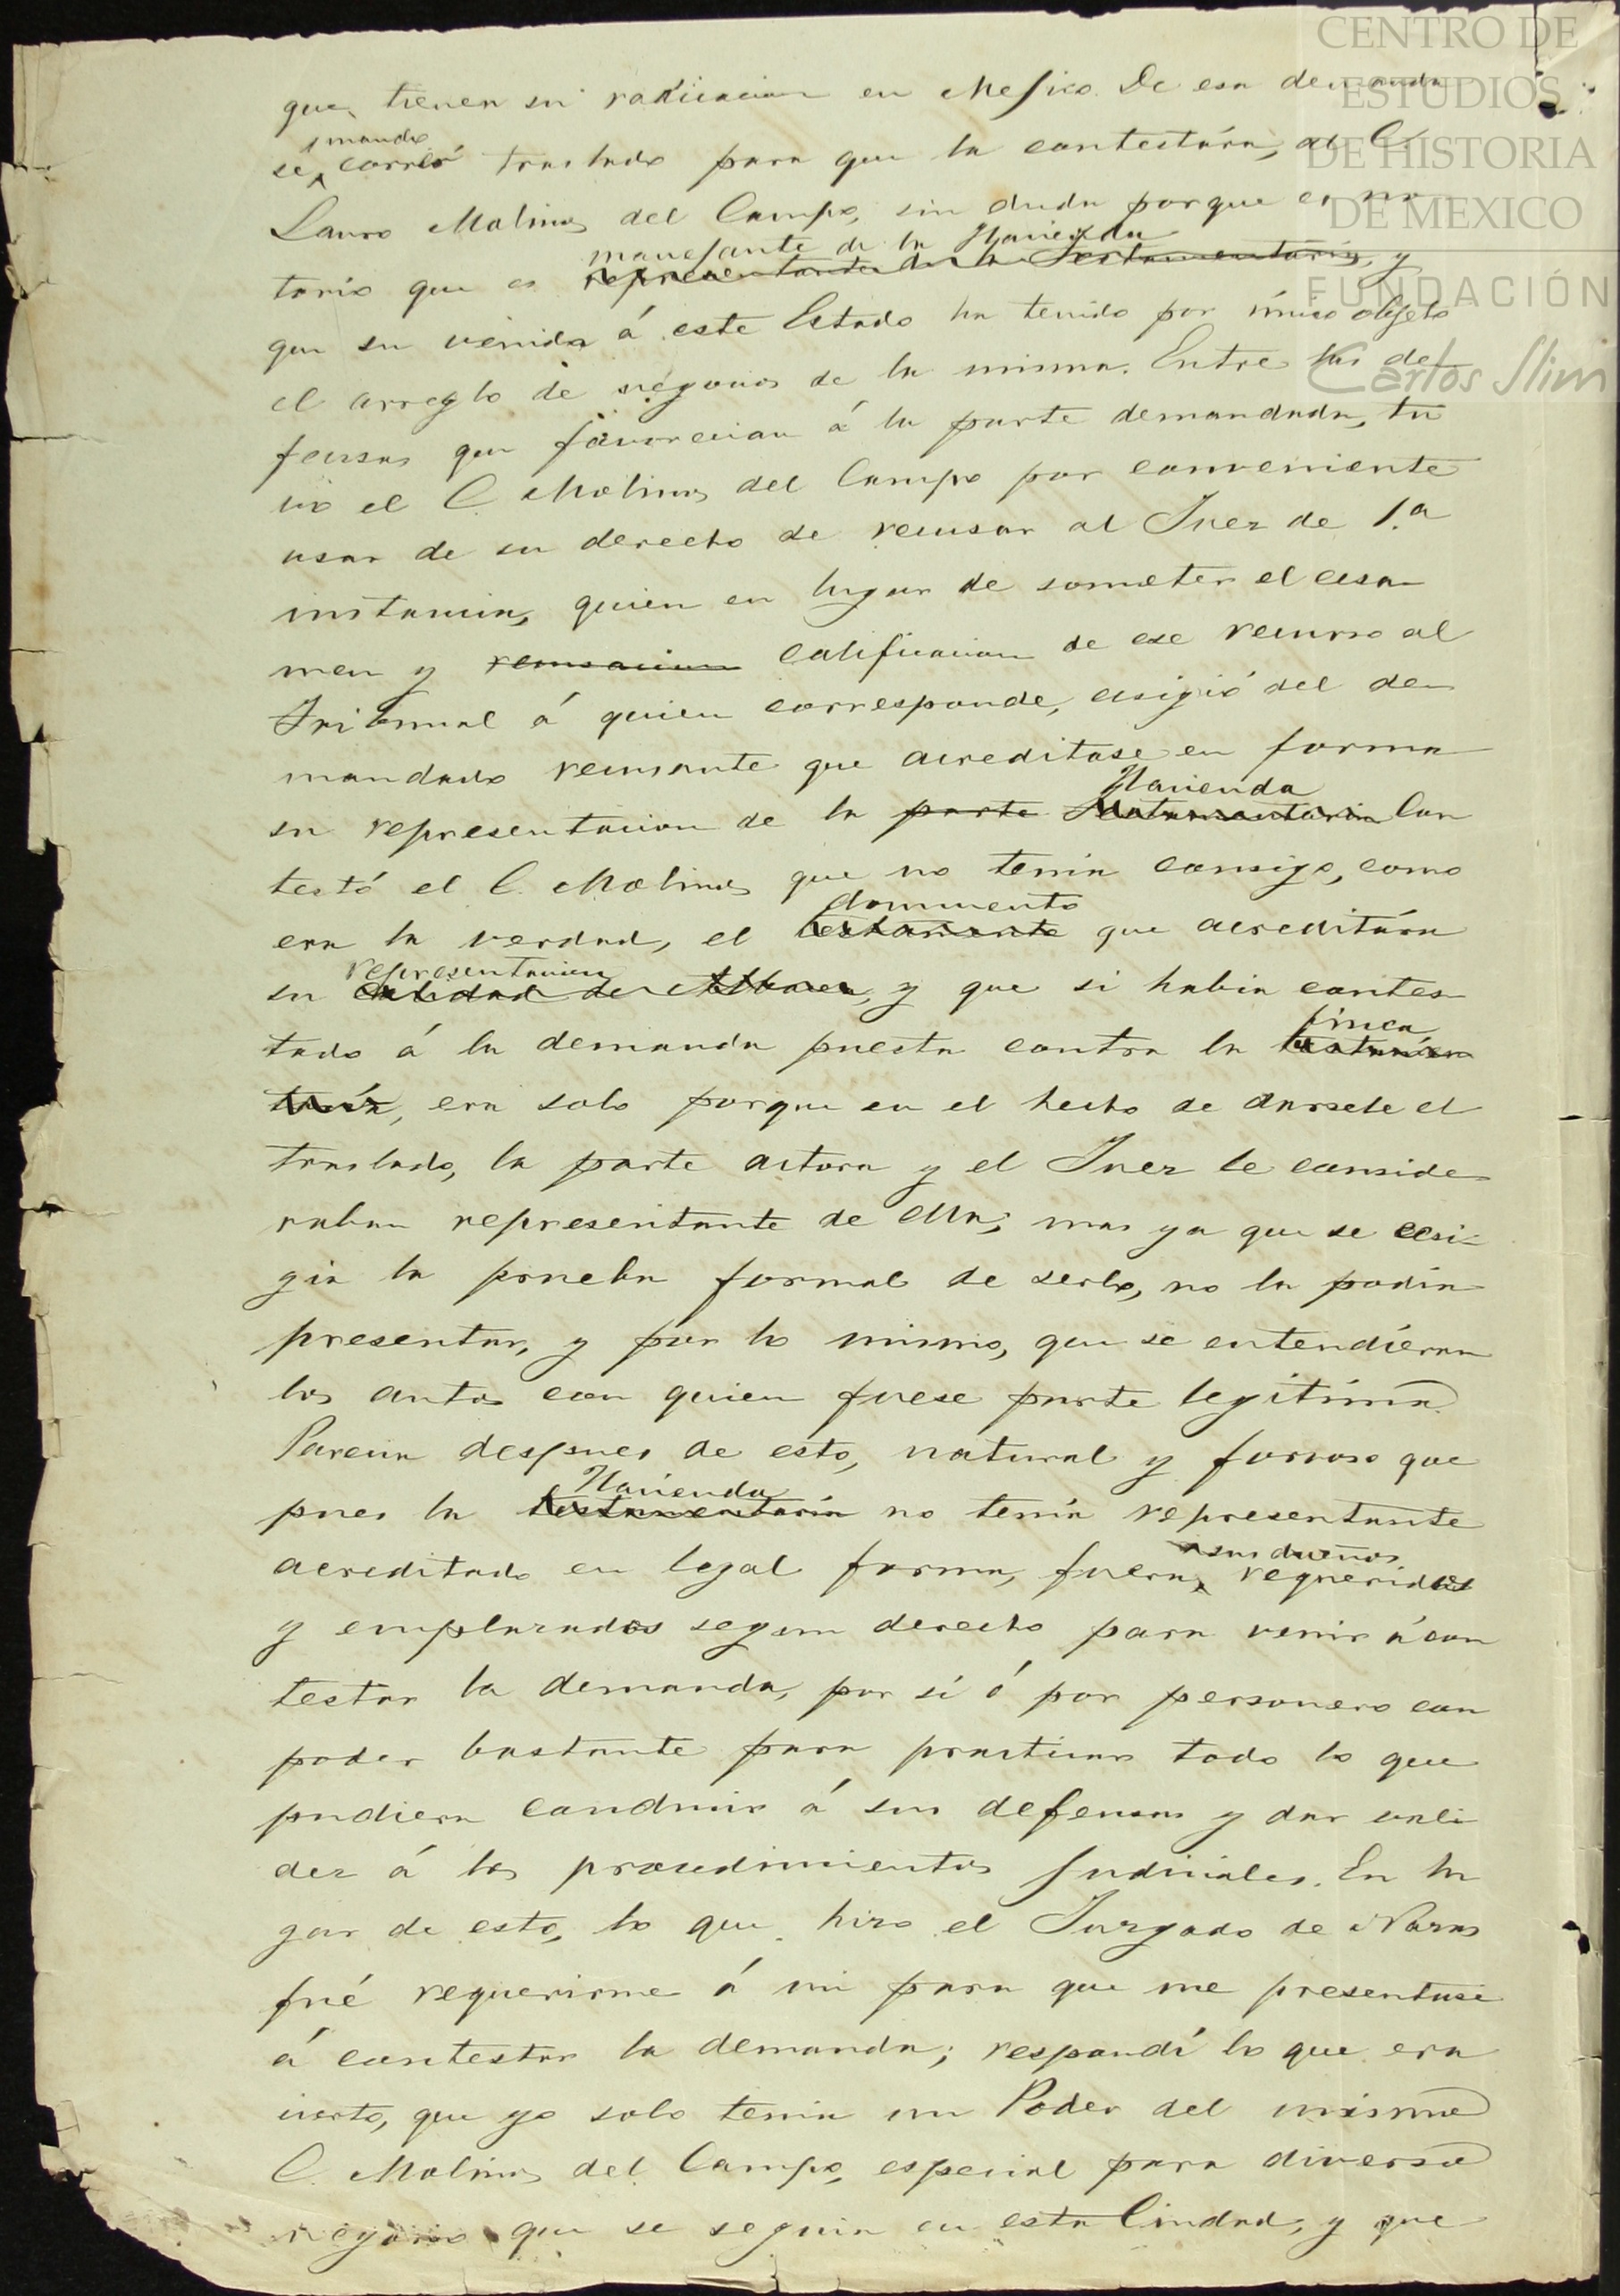 CENTRO DE
ESTUDIOS
DE HISTORIA
DE MEXICO
FUNDACIÓN
Carlos Slim
que tienen su radicacion en Mejico. De esa demanda
mandó
se correr traslado para que la contestára, al C.
Lauro Molinos del Campo, sin duda porque es no
manejante de la Hacienda
torio que es representante de la Testamentaria, y
que su venida á este Estado ha tenido por único objeto
el arreglo de negocios de la misma. Entre las de
fensas que favorecian á la parte demandada, tu
vo el C. Molinos del Campo por conveniente
usar de su derecho de recusar al Juez de 1.a
instancia, quien en lugar de someter el ecsa
men y recusacion calificacion de ese recurso al
Tribunal á quien corresponde, ecsigió del de
mandado recusante que acreditase en forma
Hacienda
su representacion de la parte Testamentaria Con
testó el C. Molinos que no tenia consigo, como
documento
era la verdad, el testamento que acreditára
representacion
su calidad de Albacea, y que si habia contes
finca
tado á la demanda puesta contra la testamen
taria, era solo porque en el hecho de darsele el
traslado, la parte actora y el Juez le conside
raban representante de ella; mas ya que se ecsi
gia la prueba formal de serlo, no la podia
presentar, y por lo mismo, que se entendieran
los autos con quien fuese parte legítima.
Parecia despues de esto, natural y forzoso que
Hacienda
pues la testamentaria no tenia representante
a sus dueños
acreditado en legal forma, fueran requeridos
y emplazados segun derecho para venir á con
testar la demanda, por sí ó por personero con
poder bastante para practicar todo lo que
pudiera conducir á sus defensas y dar vali
dez á los procedimientos judiciales. En lu
gar de esto, lo que hizo el Juzgado de Nazas
fué requerirme á mi para que me presentase
á contestar la demanda; respondí lo que era
cierto, que yo solo tenia un Poder del mismo
C. Molinos del Campo, especial para diverso
negocio que se seguia en esta Ciudad, y que